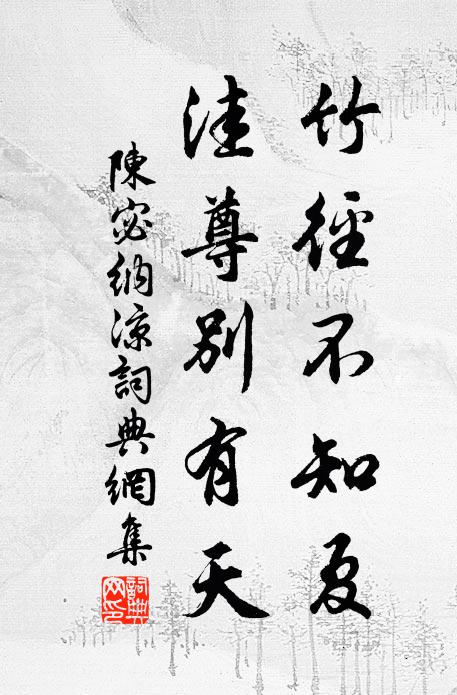 竹徑不知夏
洼尊別有天
陳宓納涼詞典網集